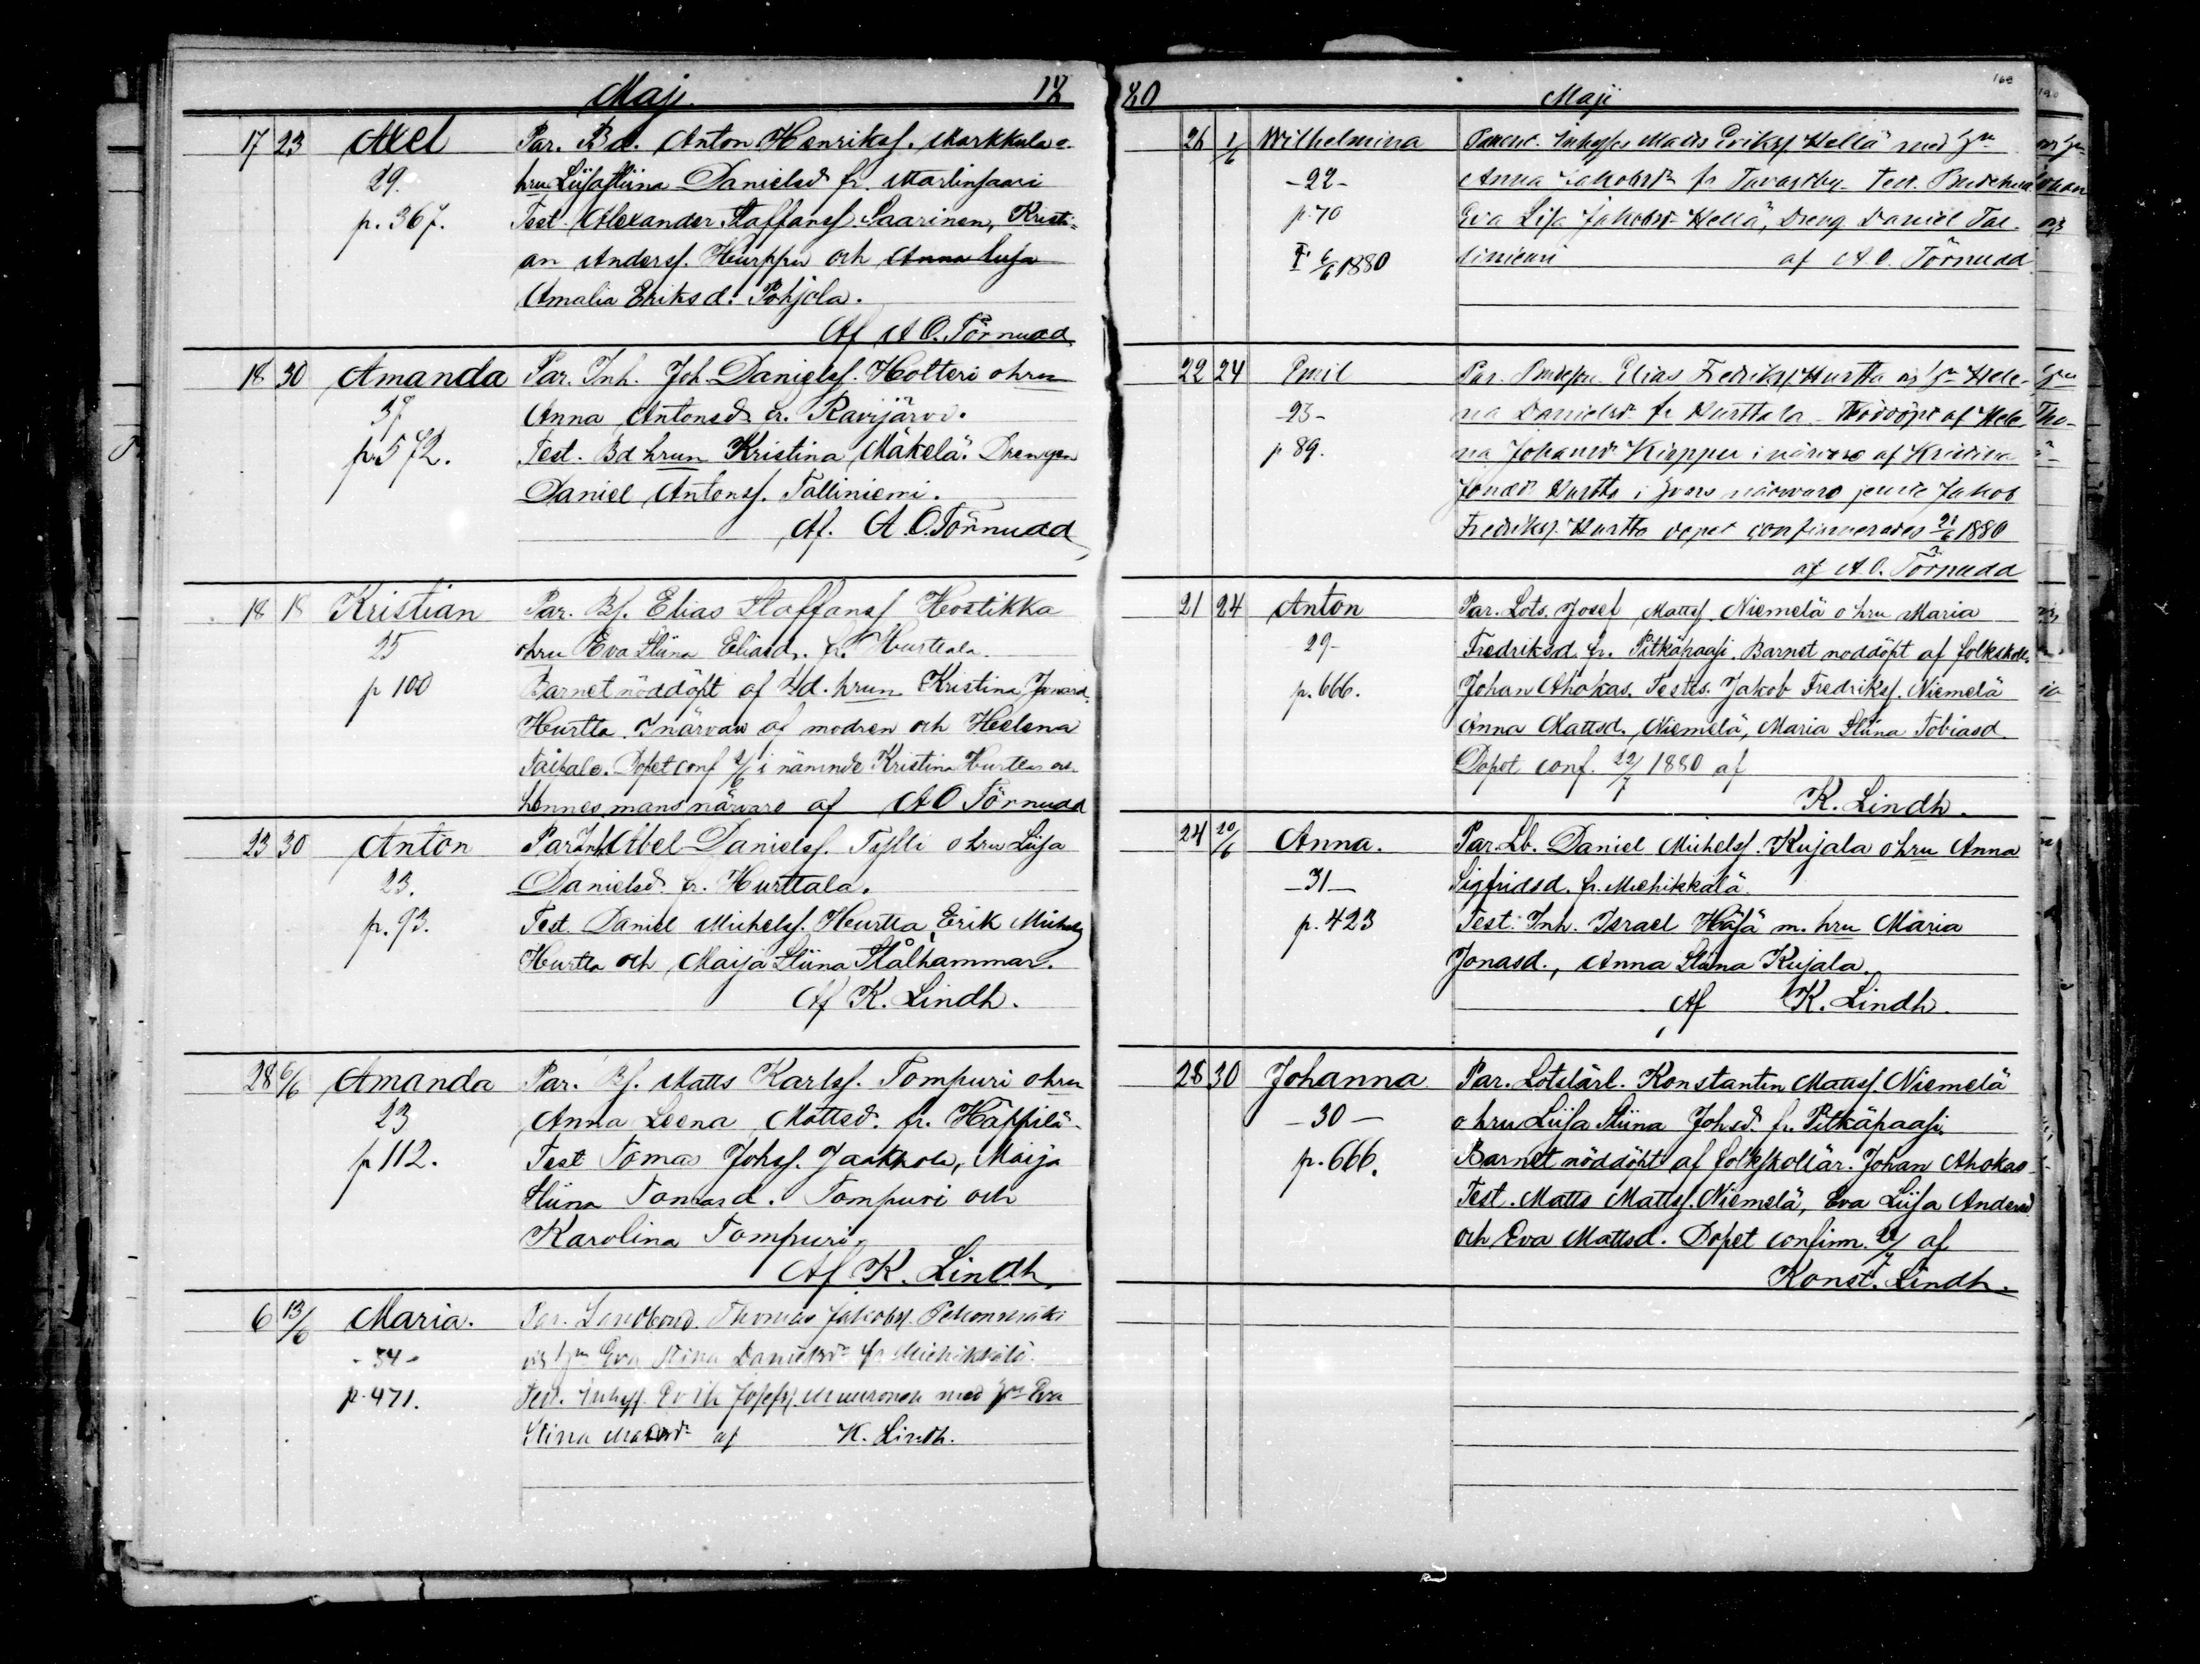 Maji. 18
17 23 Axel Par. Bd. Anton Henrikss. Markkula o.
29. hru Liisa Stiina Danielsd. fr. Martinsaari
p. 367. Test. Alexander Staffanss. Saarinen, Kristi-
an Anderss. Hurppu och Anna Lisa
Amalia Eriksd. Pohjola.
Af A O. Törnudd
18 30 Amanda Par. Inh. Joh. Danielss. Holteri o hru
37 Anna Antonsd. fr. Ravijärvi.
p. 572. Test. Bd hrun Kristina Mäkelä. Drengen
Daniel Antonss. Talliniemi.
Af. A. O. Törnudd
18 18 Kristian Par. Bs. Elias Staffanss Hostikka
25 o hru Eva Stiina Eliasd. fr. Hurttala.
p 100 Barnet nöddöpt af Bd. hrun Kristina Jonasd.
Hurtta. I närvaro af modren och Helena
Taipale. Dopet conf 2/6 i nämnde Kristina Hurttas och
hennes mans närvaro af A O Törnudd
23 30 Anton Par. Inh. Abel Danielss. Tylli o hru Liisa
23. Danielsd. fr. Hurttala.
p. 93. Test. Daniel Michelss. Hurtta, Erik Michelss
Hurtta och Maija Stiina Stålhammar.
Af K. Lindh.
28 6/6 Amanda Par. Bs. Matts Karlss. Tompuri o hru
23 Anna Leena Mattsd. fr. Häppilä.
p 112. Test Tomas Johss. Jaakkola, Maija
Stiina Tomasd. Tompuri och
Karolina Tompuri.
Af K. Lindh.
6 13/6 Maria. Par. Landbond. Thomas Jakobss. Pekonmäki
- 34 - Eva Stina Danielsd. fr Miehikkälä.
p. 471. Test. Inhyss. Josefss. Muuronen med Eva
Stina af K. Lindh.
80 Maji 168
26 1/6 Wilhelmina Inhyses Matts Erikss. Hellä med
- 22 - Anna Jakobsd. fr Tavastby. Test.
p 70 Eva Lisa Jakobsd. Hellä, Dreng Daniel Tal-
6/6 1880 liniemi af A. O. Törnudd
22 24 Emil Par. Elias Fredrikss Hurtta Hele-
- 23 - na Danielsd. fr Hurttala. Nöddöpt af Hele-
p 89. na Johansd. i närvaro af Kristina
Jonasd. Hurtta, i närvaro jemte Jakob
Fredrikss. Hurtta dopet confirmerades 21/6 1880
af A. O. Törnudd
21 24 Anton Par. Lots. Josef Mattss. Niemelä o hru Maria
29 - Fredriksd. fr. Pitkäpaasi. Barnet nöddöpt af folkskoll.
p. 666. Johan Ahokas. Testes. Jakob Fredrikss. Niemelä
Anna Mattsd. Niemelä, Maria Stiina Tobiasd.
Dopet conf. 22/7 1880 af
K. Lindh.
24 20/6 Anna. Par. Lb. Daniel Michelss. Kujala o hru Anna
- 31 - Sigfridsd. fr. Miehikkälä.
p. 423 Test. Inh. Israel m. hru Maria
Jonasd., Anna Stiina Kujala.
Af K. Lindh.
28 30 Johanna Par. Lotslärl. Konstantin Mattss. Niemelä
- 30 - o hru Liisa Stiina Johsd. fr. Pitkäpaasi.
p. 666. Barnet nöddöpt af folkskollär. Johan Ahokas
Test. Matts Mattss. Niemelä, Eva Liisa Andersd
och Eva Mattsd. Dopet confirm. 22/7 af
Konst. Lindh.